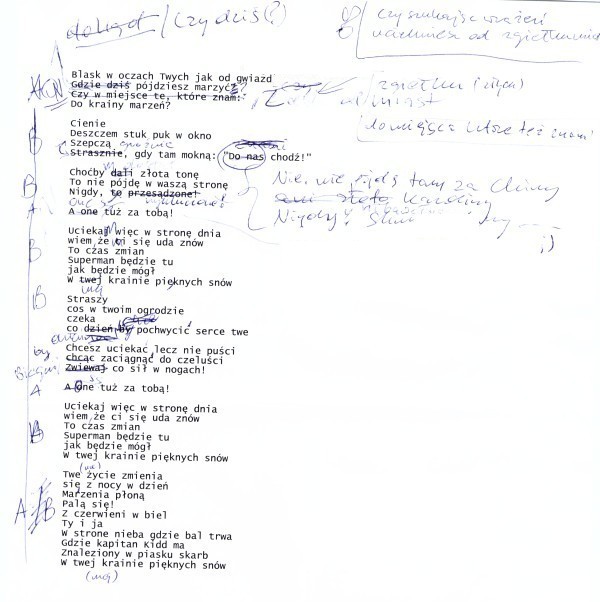 dokąd / Czy dziś (?)
czy szukając wrażeń
uciekniesz od zgiełku
Blask w oczach Twych jak od gwiazd
Gdzie dziś pójdziesz marzyć?
Czy w miejsce te, które znam:
Do krainy marzeń?
zgiełku (życia)
miast
do miejsca które też znam
Cienie
Deszczem stuk puk w okno
Szepczą
Strasznie, gdy tam mokną: "Do nas chodź!"
Choćby dali złota tonę
To nie pójdę w waszą stronę
Nigdy, to przesądzone!
A one tuż za tobą!
Nie, nie pójdę tam za Chiny
Karoliny
Nigdy!
Uciekaj więc w stronę dnia
wiem,że ci się uda znów
To czas zmian
Superman będzie tu
jak będzie mógł
W twej krainie pięknych snów
mej
Straszy
cos w twoim ogrodzie
czeka
co dzień by pochwycić serce twe
Chcesz uciekać lecz nie puści
by
chcąc zaciągnąć do czeluści
Zwiewaj co sił w nogach!
A one tuż za tobą!
Uciekaj więc w stronę dnia
wiem,że ci się uda znów
To czas zmian
Superman będzie tu
jak będzie mógł
W twej krainie pięknych snów
Twe życie zmienia
się z nocy w dzień
Marzenia płoną
Palą się!
Z czerwieni w biel
Ty i ja
W strone nieba gdzie bal trwa
Gdzie kapitan Kidd ma
Znaleziony w piasku skarb
W twej krainie pięknych snów
(mej)